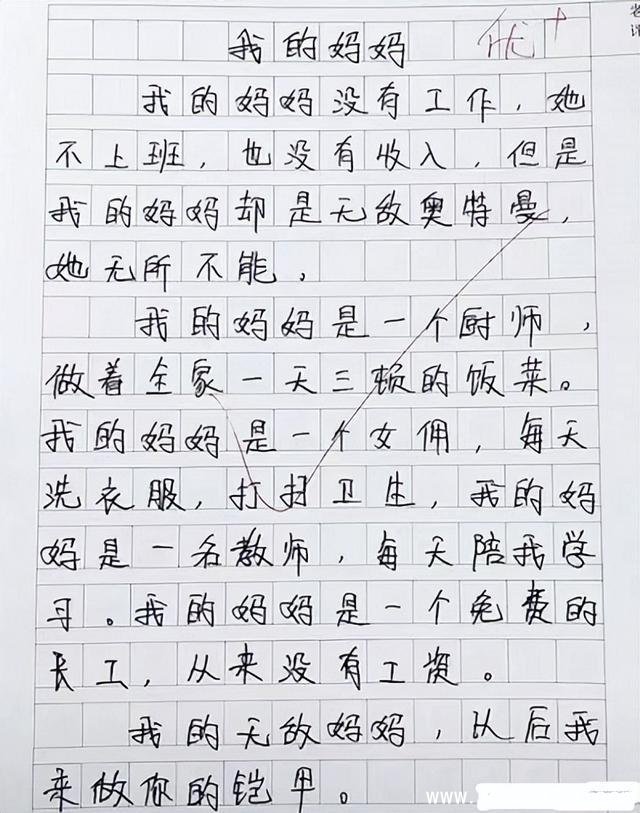 我的妈妈 优+
我的妈妈没有工作，她
不上班，也没有收入，但是
我的妈妈却是无敌奥特曼，
她无所不能，
我的妈妈是一个厨师，
做着全家一天三顿的饭菜。
我的妈妈是一个女佣，每天
洗衣服，打扫卫生，我的妈
妈是一名教师，每天陪我学
习。我的妈妈是一个免费的
长工，从来没有工资。
我的无敌妈妈，以后我
来做你的铠甲。
www.